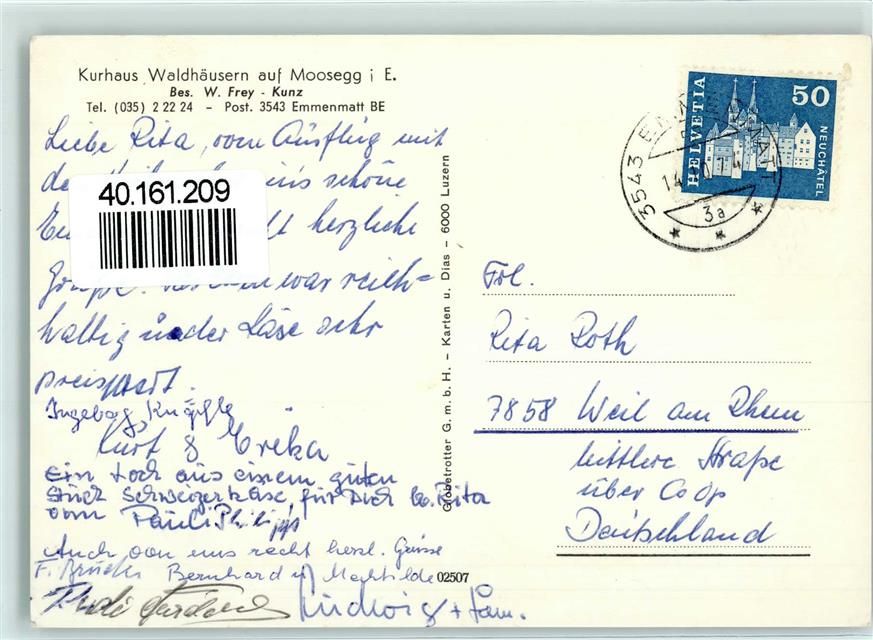 Kurhaus Waldhäusern auf Moosegg i E.
Bes. W. Frey - Kunz
Tel. (035) 2 22 24 - Post. 3543 Emmenmatt BE
Liebe Rita, vom Ausflug mit
schöne
40.161.209
herzliche
war reich=
haltig u. der Käse sehr
preiswert.
Ingeborg
Kurt & Erika
Ein Loch aus einem guten
Stück Schweizerkäse für Dich lb. Rita
vom Pauli Philipp
Auch von uns recht herzl. Grüsse
Bernhard u. Mechthilde
Ludwig + Fam.
02507
Globetrotter G.m.b.H. - Karten u. Dias - 6000 Luzern
HELVETIA
50
NEUCHÂTEL
3543 EMMENMATT
3a
Frl.
Rita Roth
7858 Weil am Rhein
Mittlere Straße
über Co op
Deutschland